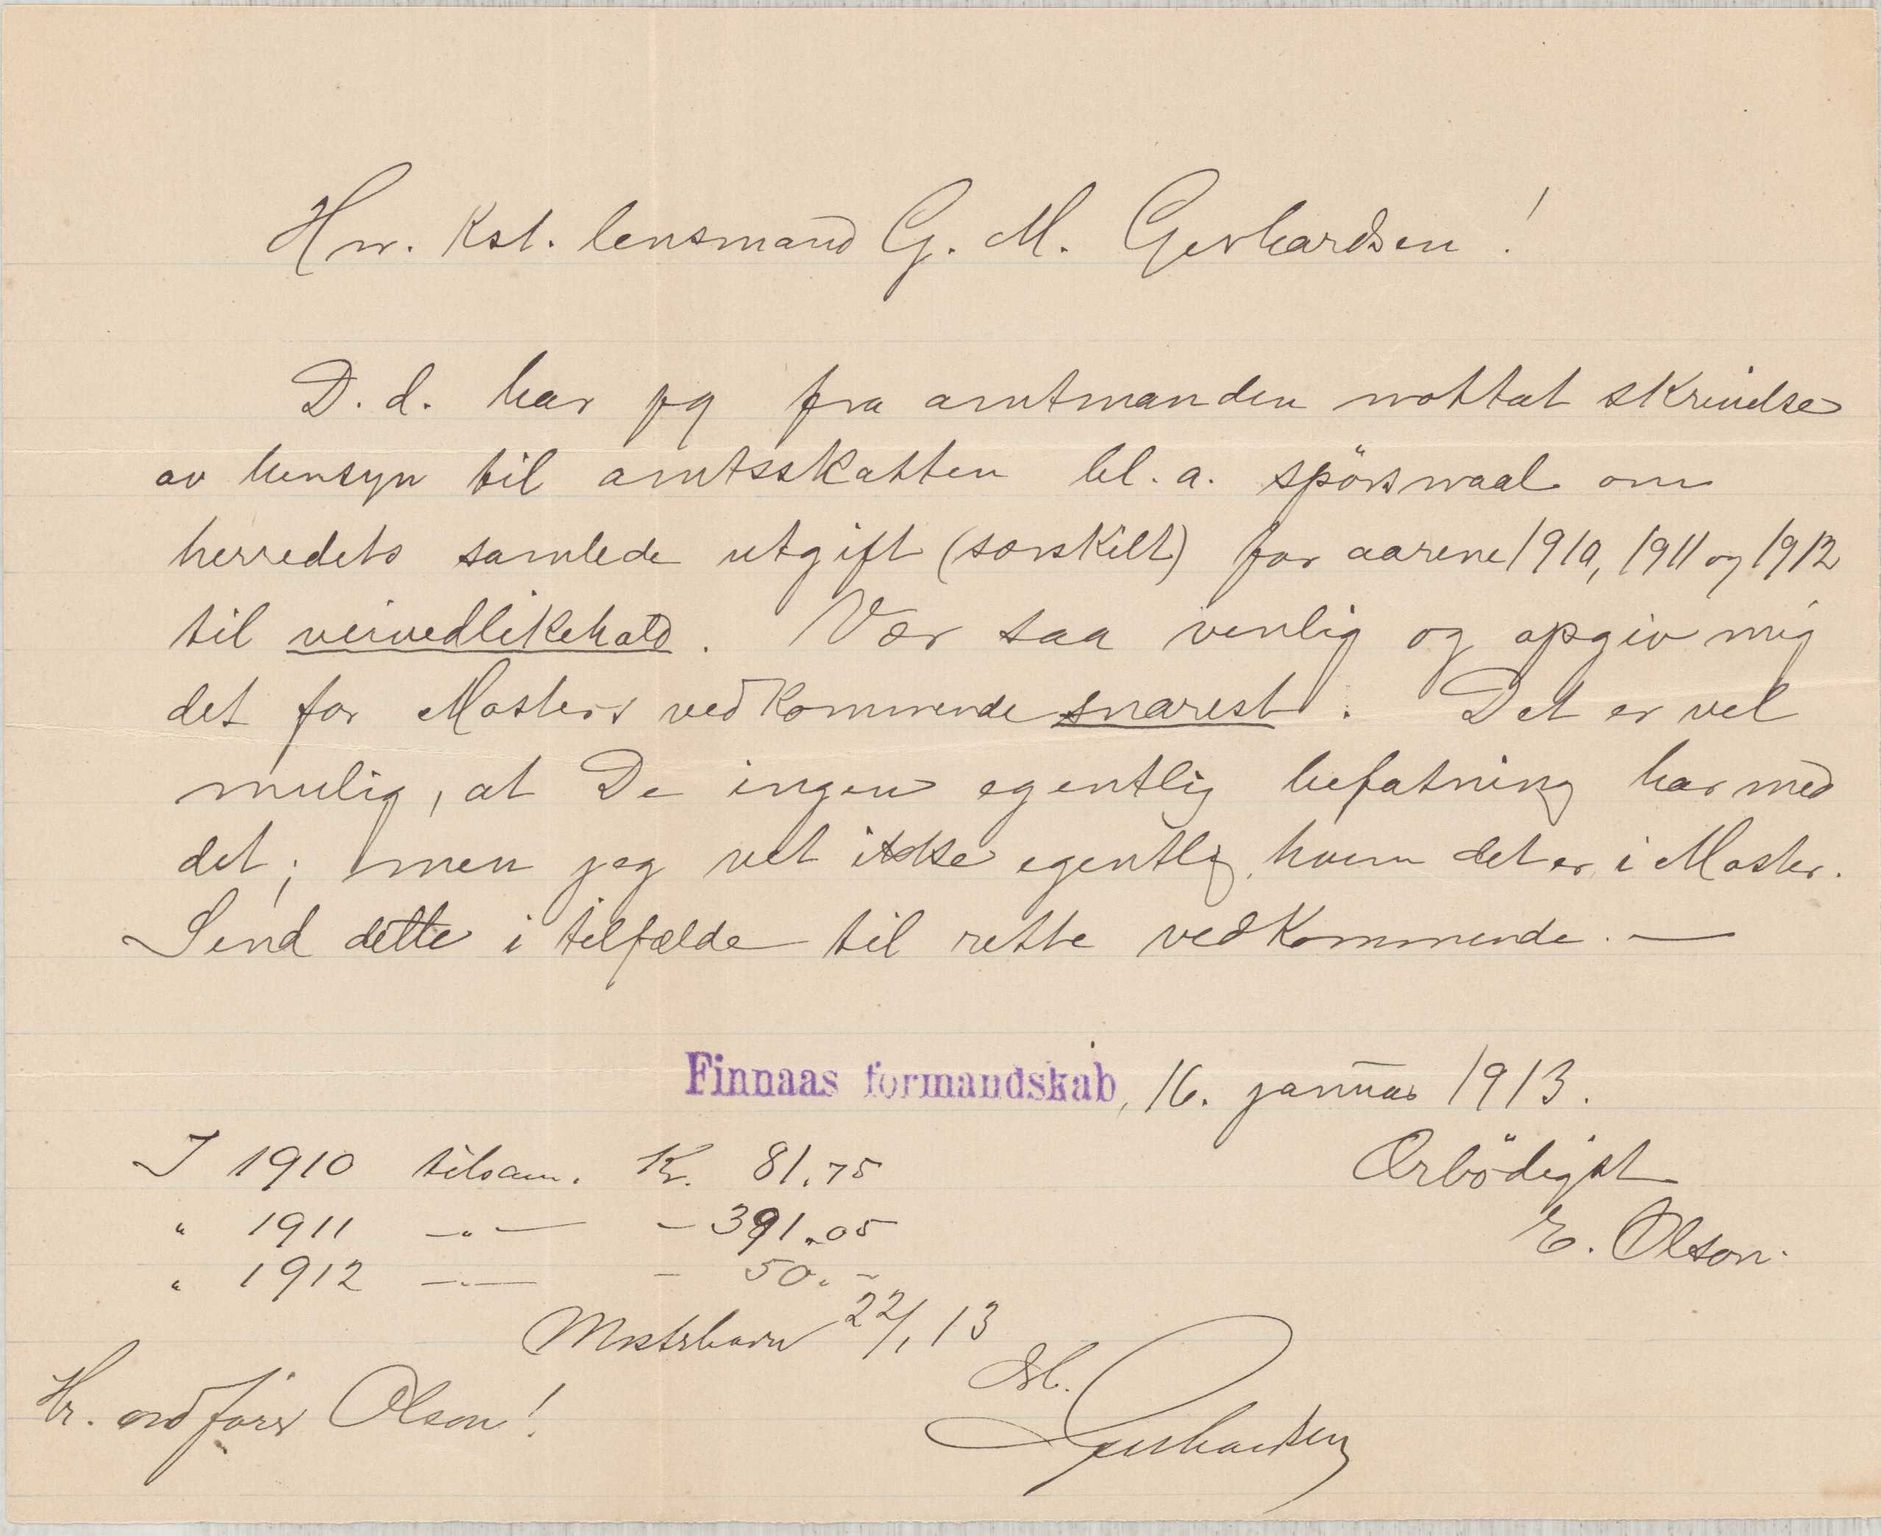 Hr. Kst. lensmand G. M. Gerhardsen!
D. d. har jeg fra amtmanden mottat skrivelse
av hensyn til amtsskatten bl. a. spörsmaal om
herredets samlede utgift (særskilt) for aarene 1910, 1911 og 1912
til veivedlikehold. Vær saa venlig og opgiv mig
det for Mosters vedkommende snarest. Det er vel
mulig, at De ingen egentlig befatning har med
det; men jeg vet ikke egentlig, hvem det er i Moster.
Send dette i tilfælde til rette vedkommende. —
Finnaas formandskab, 16. januar 1913.
Ærbödigst
E. Olson.
I 1910 tilsam. Kr. 81.75
" 1911 —"— - 391.05
" 1912 —"— - 50.-
Mosterhavn 22/1 13
Gerhardsen
Hr. ordförer Olson!